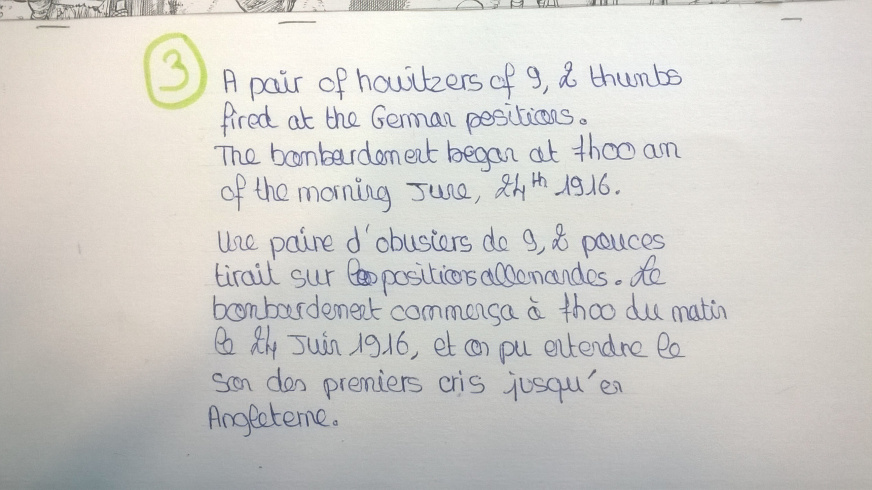 3
A pair of howitzers of 9,2 thumbs
fired at the German positions.
The bombardement began at 7h00 am
of the morning June, 24th 1916.
Une paire d'obusiers de 9,2 pouces
tirait sur les positions allemandes. Le
bombardement commença à 7h00 du matin
le 24 Juin 1916, et on pu entendre le
son des premiers cris jusqu'en
Angleterre.